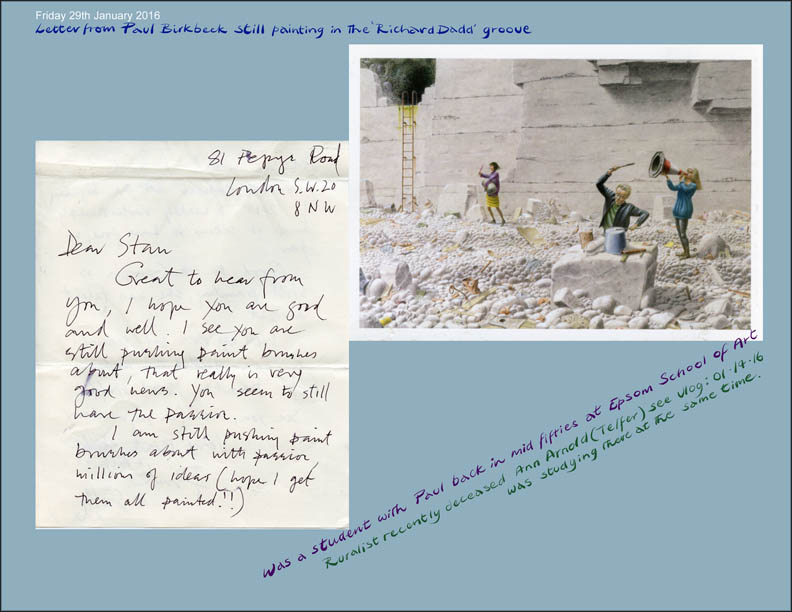 Friday 29th January 2016
Letter from Paul Birkbeck still painting in the 'Richard Dadd' groove
81 Pepys Road
London S.W.20
8 NW
Dear Stan
Great to hear from
you, I hope you are good
and well. I see you are
still pushing paint brushes
about, that really is very
good news. You seem to still
have the passion.
I am still pushing paint
brushes about with passion
millions of ideas (hope I get
them all painted!!)
Was a student with Paul back in mid fifties at Epsom School of Art
Ruralist recently deceased Ann Arnold (Telfer) see vlog: 01-14-16
was studying there at the same time.